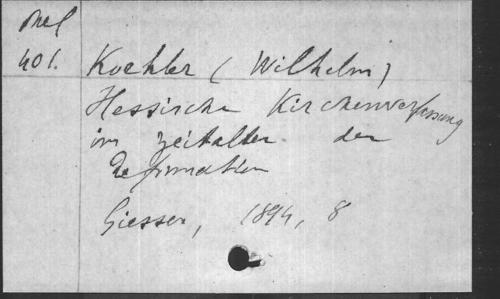 Mel
401.
Koehler (Wilhelm)
Hessische Kirchenverfassung
im Zeitalter der
Reformation
Giessen, 1894, 8